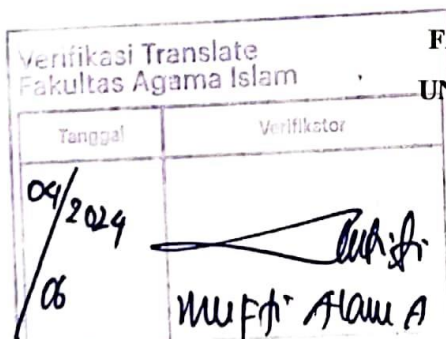 Verifikasi Translate
Fakultas Agama Islam
F
UN
Tanggal Verifikator
04/2024
06
Mufti Alam A